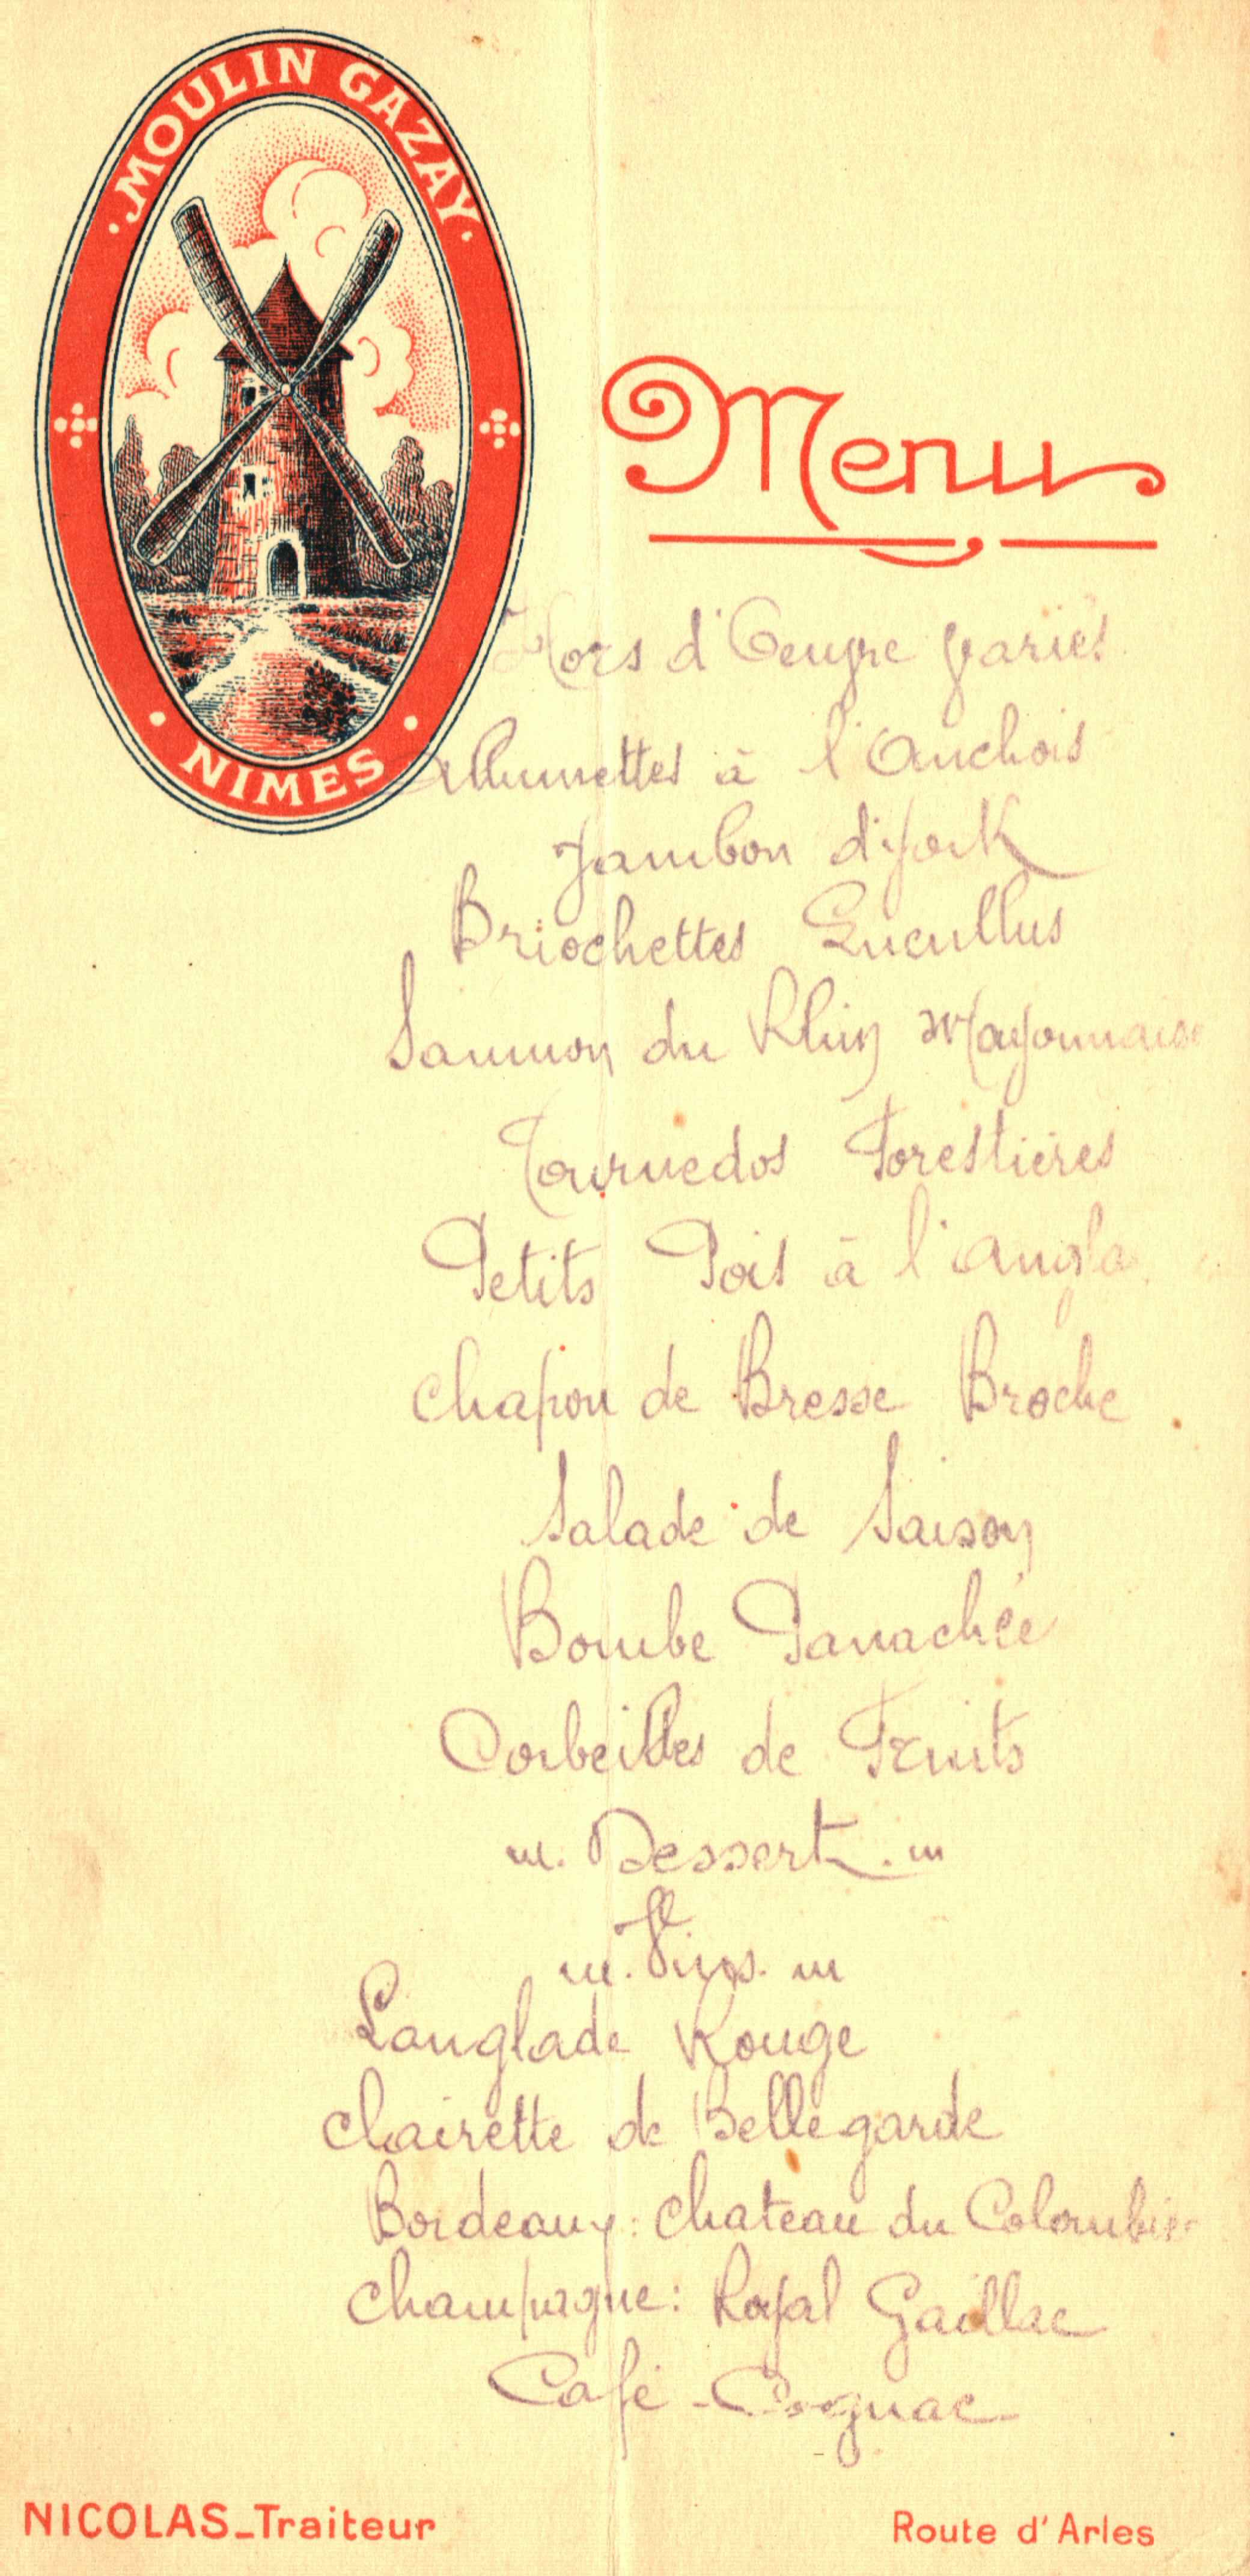 MOULIN GAZAY
NIMES
Menu
Hors d'Oeuvre Variés
Allumettes à l'Anchois
Jambon d'york
Briochettes Lucullus
Saumon du Rhin Mayonnaise
Tournedos Forestières
Petits Pois à l'angla
Chapon de Bresse Broche
Salade de Saison
Bombe Panachée
Corbeilles de Fruits
Dessert
Vins
Langlade Rouge
Clairette de Bellegarde
Bordeaux: Chateau du Colombier
Champagne: Royal Gaillac
Café - Cognac
NICOLAS_Traiteur
Route d'Arles